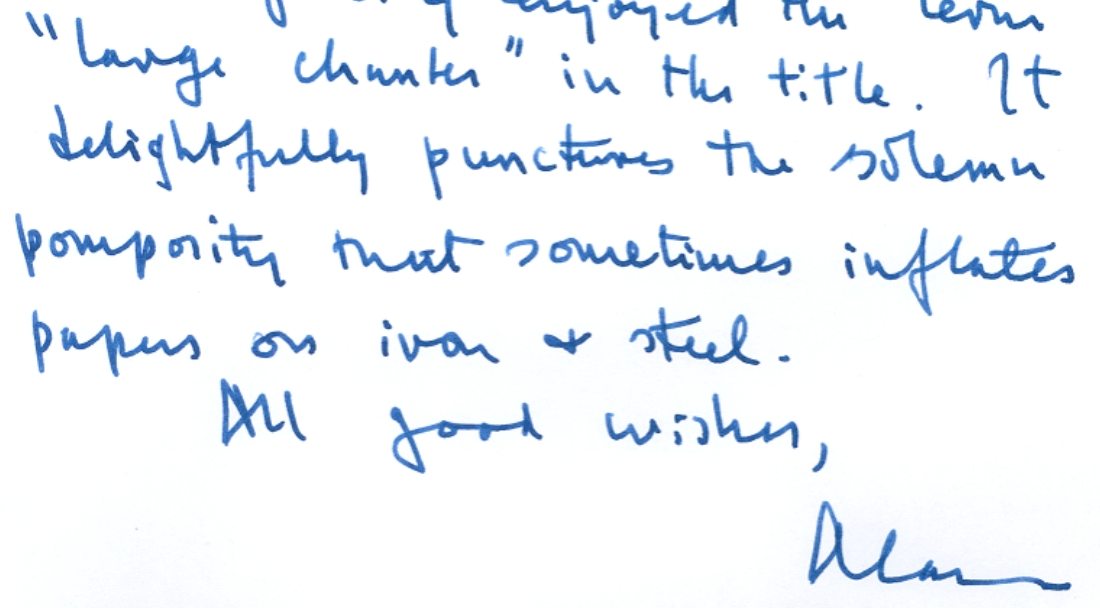 enjoyed the term
"large chunks" in the title. It
delightfully punctures the solemn
pomposity that sometimes inflates
papers on iron & steel.
All good wishes,
Alan